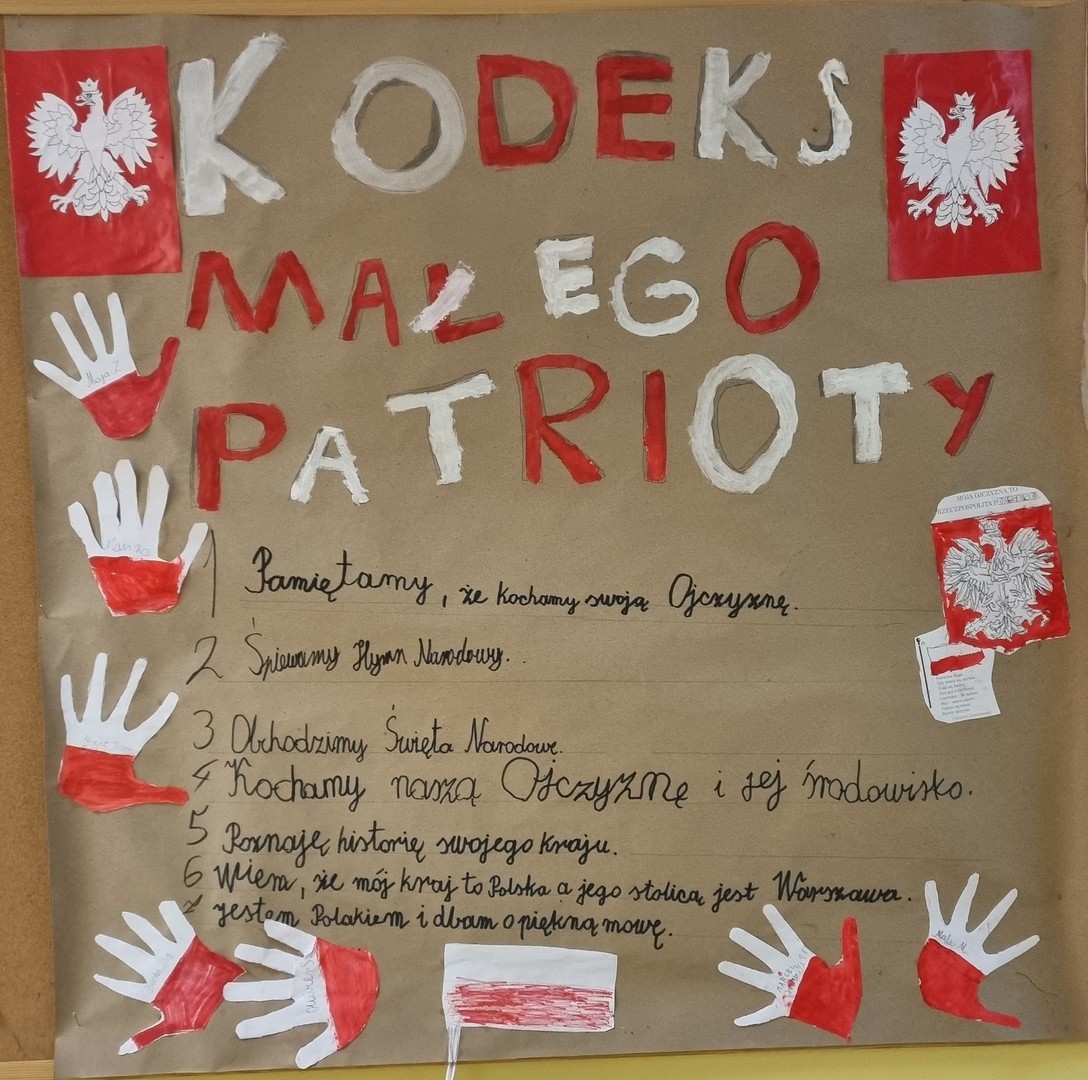 KODEKS
MAŁEGO
PATRIOTY
Maja Z
MOJA OJCZYZNA TO
RZECZPOSPOLITA POLSKA
1 Pamiętamy, że kochamy swoją Ojczyznę.
2 Śpiewamy Hymn Narodowy.
3 Obchodzimy Święta Narodowe.
4 Kochamy naszą Ojczyznę i jej środowisko.
5 Poznaję historię swojego kraju.
6 Wiem, że mój kraj to Polska a jego stolicą jest Warszawa.
7 jestem Polakiem i dbam o piękną mowę.
Maja M.